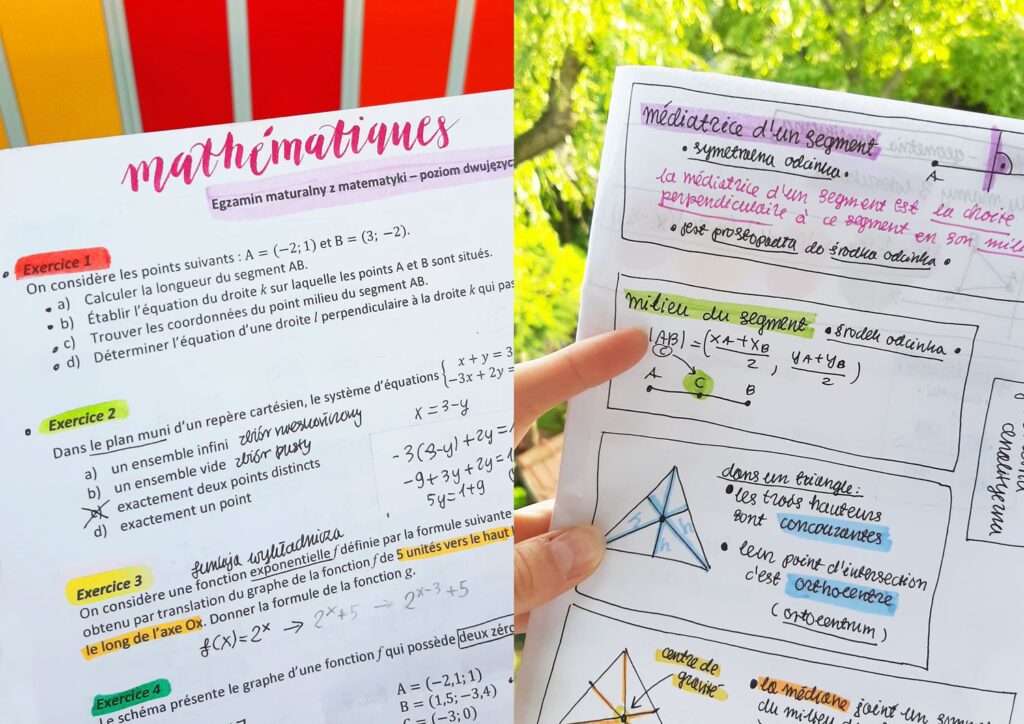 mathématiques
Egzamin maturalny z matematyki – poziom dwujęzycz
Exercice 1
On considère les points suivants : A = (−2; 1) et B = (3; −2).
a) Calculer la longueur du segment AB.
b) Établir l'équation du droite k sur laquelle les points A et B sont situés.
c) Trouver les coordonnées du point milieu du segment AB.
d) Déterminer l'équation d'une droite l perpendiculaire à la droite k qui pas
Exercice 2
Dans le plan muni d'un repère cartésien, le système d'équations { x + y = 3
−3x + 2y =
a) un ensemble infini zbiór nieskończony
b) un ensemble vide zbiór pusty
exactement deux points distincts
d) exactement un point
x = 3-y
-3(3-y) + 2y = 1
-9+3y+2y = 1
5y = 1+9
funkcja wykładnicza
Exercice 3
On considère une fonction exponentielle f définie par la formule suivante
obtenu par translation du graphe de la fonction f de 5 unités vers le haut
le long de l'axe Ox. Donner la formule de la fonction g.
f(x) = 2ˣ → 2ˣ+5 → 2ˣ⁻³+5
Exercice 4
Le schéma présente le graphe d'une fonction f qui possède deux zéro
A = (−2,1; 1)
B = (1,5; −3,4)
C = (−3; 0)
médiatrice d'un segment
• symetralna odcinka •
A
la médiatrice d'un segment est la droite
perpendiculaire à ce segment en son mili
• jest prostopadła do środka odcinka •
milieu du segment • środek odcinka •
|AB| = (xA+xB/2, yA+yB/2)
C
A C B
dans un triangle:
• les trois hauteurs
sont concourantes
• leur point d'intersection
c'est orthocentre
(ortocentrum)
h h h
centre de
gravité
• la médiane joint un sommet
du milieu